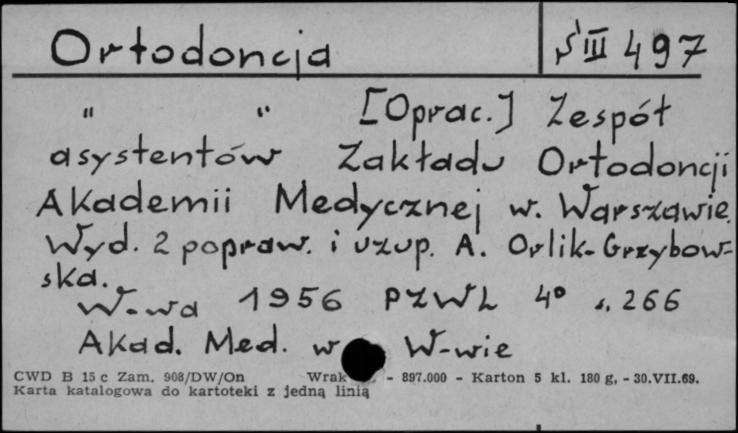 Ortodoncja
Ś III 497
" " [Oprac.] Zespół
asystentów Zakładu Ortodoncji
Akademii Medycznej w. Warszawie.
Wyd. 2 popraw. i uzup. A. Orlik-Grzybow-
ska.
W-wa 1956 PZWL 4° s. 266
Akad. Med. w W-wie
CWD B 15 c Zam. 908/DW/On Wrak - 897.000 - Karton 5 kl. 180 g, - 30.VII.69.
Karta katalogowa do kartoteki z jedną linią